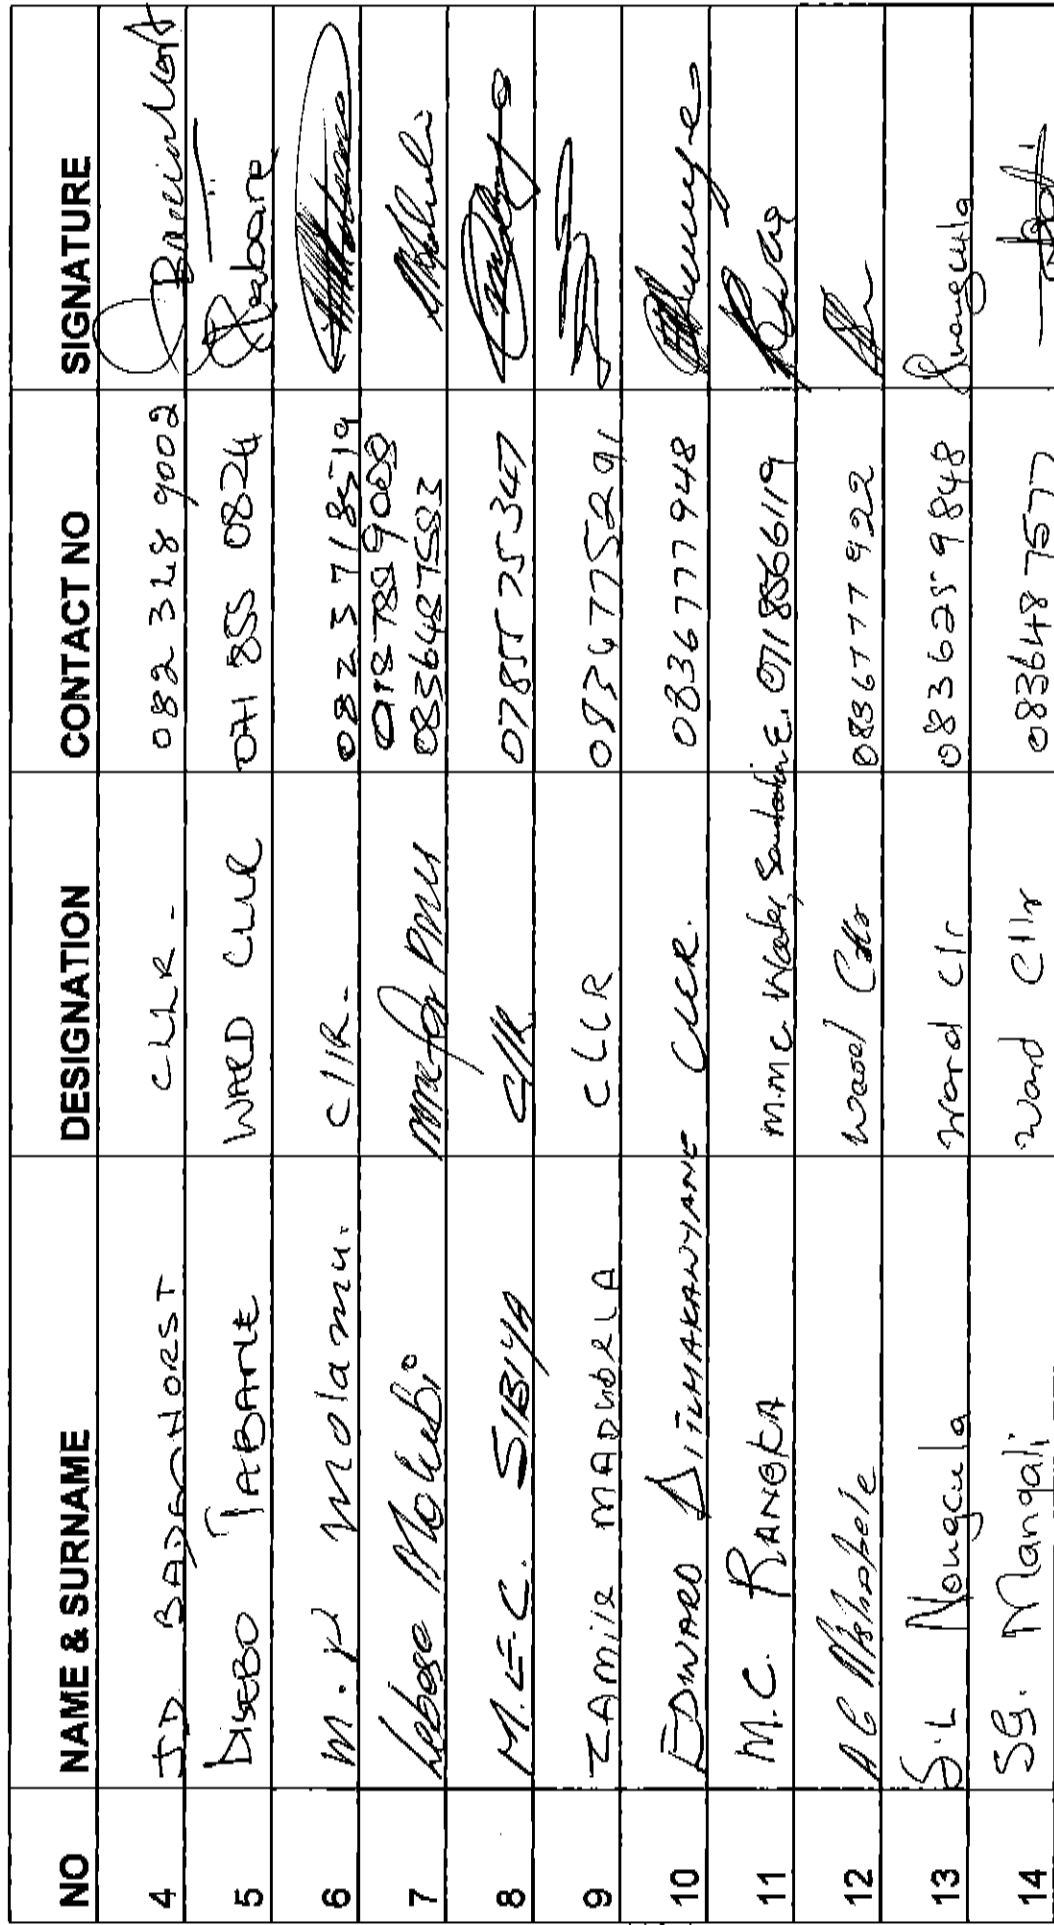 NO NAME & SURNAME DESIGNATION CONTACT NO SIGNATURE
4 J.D. BADENHORST CLLR - 082 328 9002
5 DISEBO TABANE WARD CLLR 071 855 0824
6 M.P Molamu. CllR - 0823718519
7 Lebogo Molubi PMU 0187889068
0836487583
8 M.E.C. SIBIYA CllR 0785575347
9 ZAMILE MADUBELA CLLR 0836775291
10 EDWARD DITLHAKANYANE CLLR. 0836777948
11 M.C. RANGKA M.M.C Water, Sanitation E. 0718866619
12 AG Ward Cllr 0836777922
13 S.L Nongcula Ward Clr 0836259848 Snongcula
14 SG. Mangali Ward Cllr 0836487577